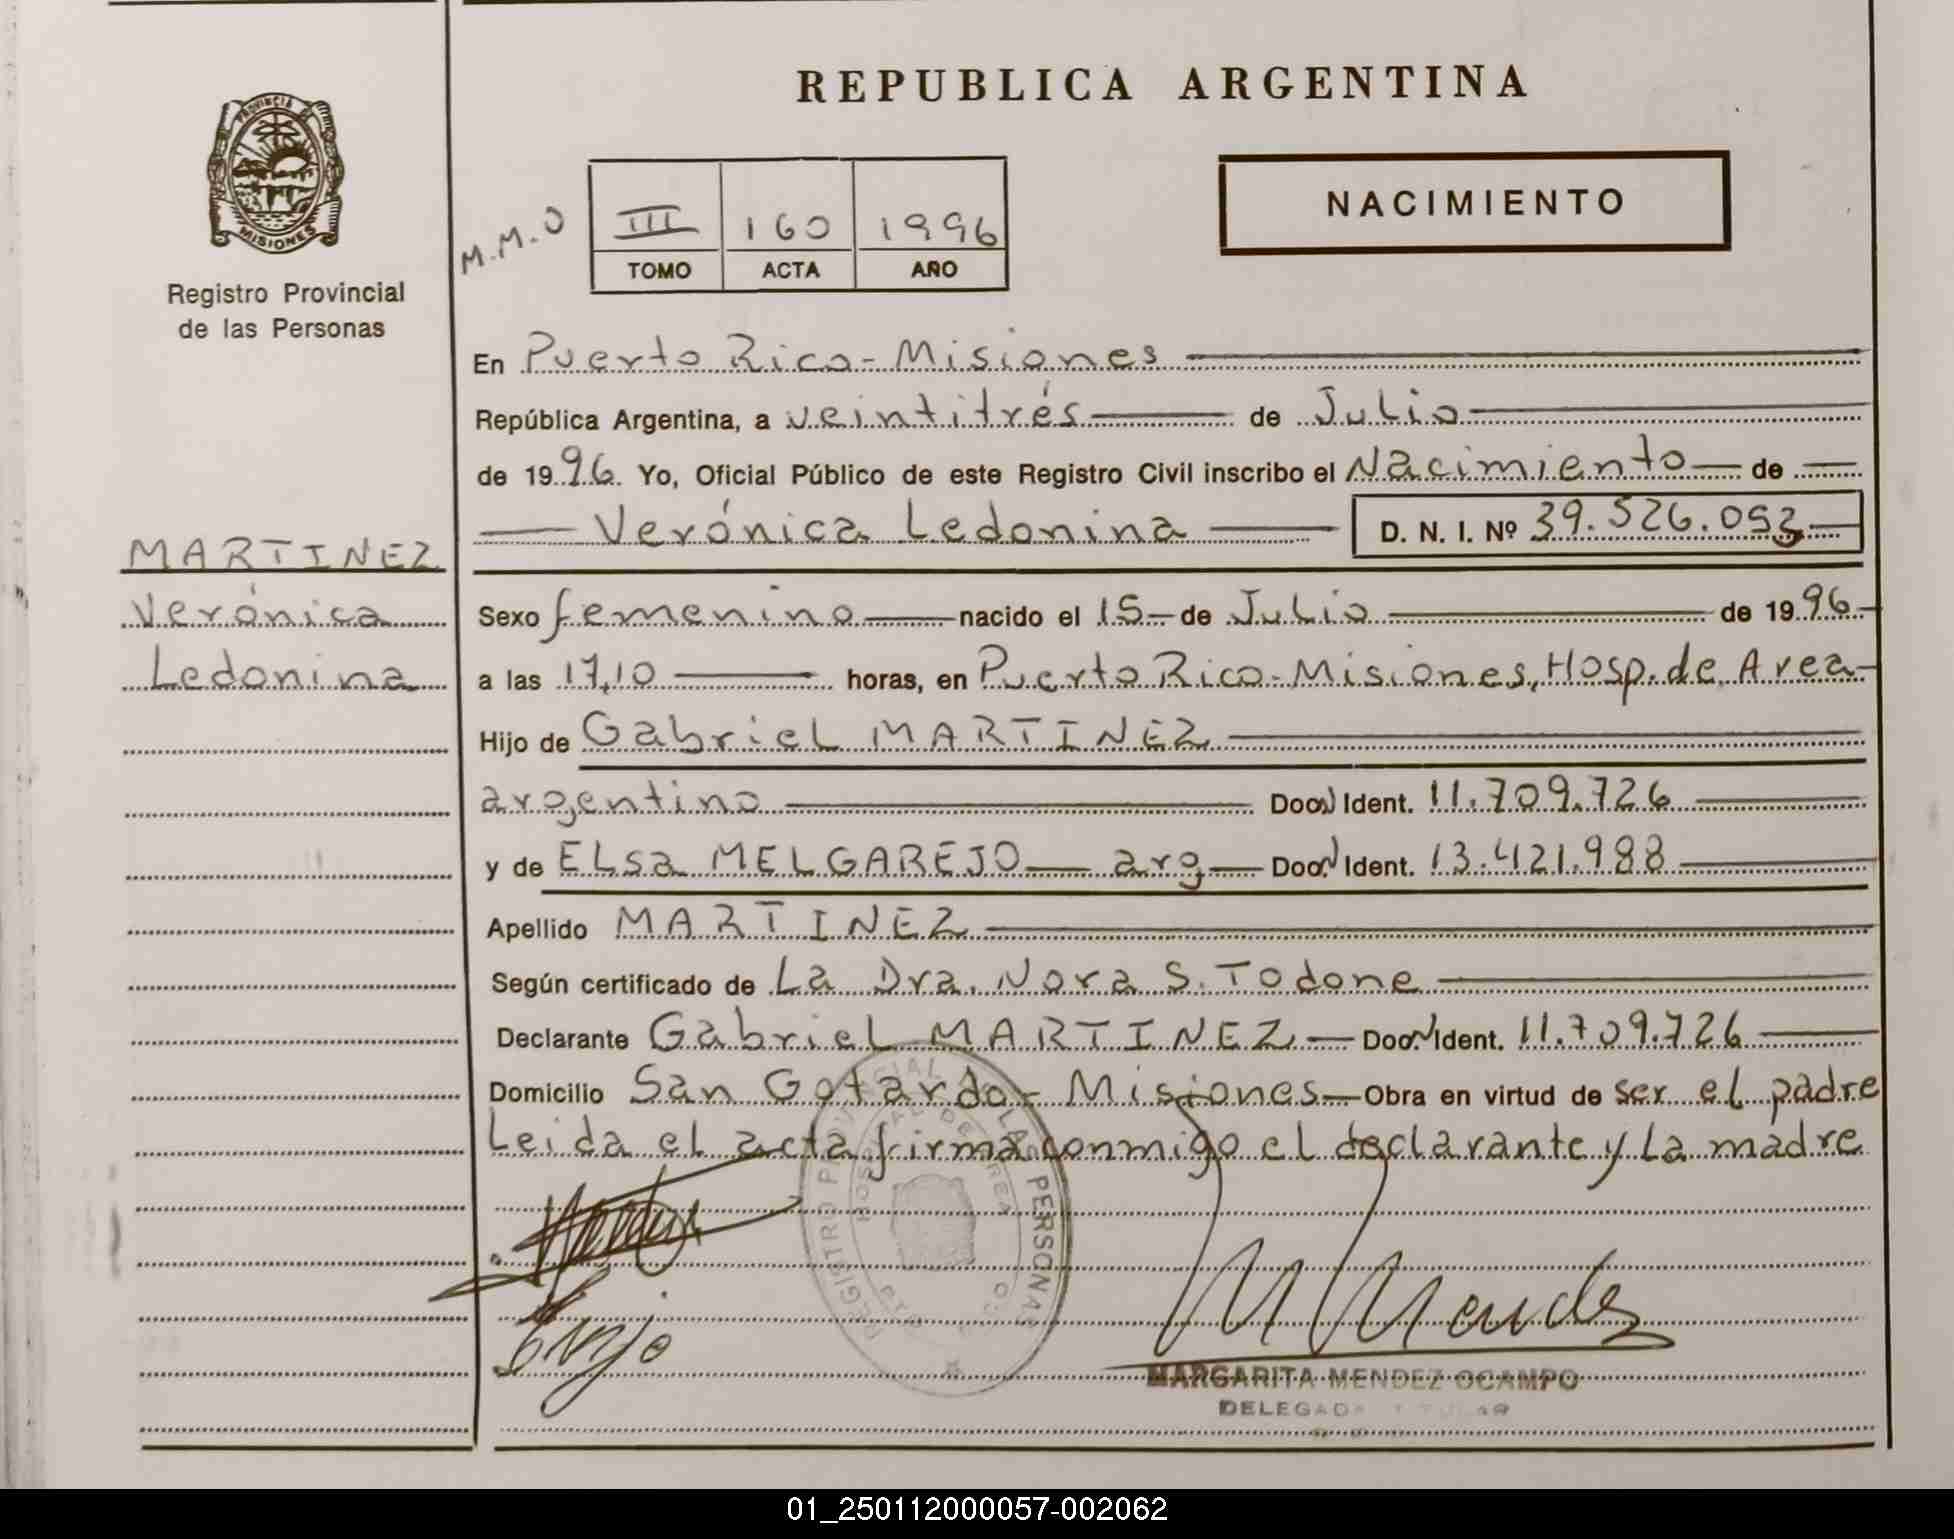 REPUBLICA ARGENTINA
PROVINCIA DE
MISIONES
Registro Provincial
de las Personas
M.M.O
III 160 1996
TOMO ACTA AÑO
NACIMIENTO
En Puerto Rico - Misiones
República Argentina, a veintitrés de Julio
de 1996. Yo, Oficial Público de este Registro Civil inscribo el Nacimiento de
Verónica Ledonina D. N. I. Nº 39.526.053
MARTINEZ
Verónica
Ledonina
Sexo femenino nacido el 15 de Julio de 1996
a las 17,10 horas, en Puerto Rico - Misiones, Hosp. de Area
Hijo de Gabriel MARTINEZ
argentino Doc. N Ident. 11.709.726
y de ELsa MELGAREJO arg Doc. N Ident. 13.421.988
Apellido MARTINEZ
Según certificado de La Dra. Nora S. Todone
Declarante Gabriel MARTINEZ Doc. N Ident. 11.709.726
Domicilio San Gotardo - Misiones Obra en virtud de ser el padre
Leida el acta firma conmigo el declarante y La madre
REGISTRO PROVINCIAL DE LAS PERSONAS
HOSPITAL DE AREA
M Mendez
MARGARITA MENDEZ OCAMPO
DELEGADA TITULAR
01_250112000057-002062